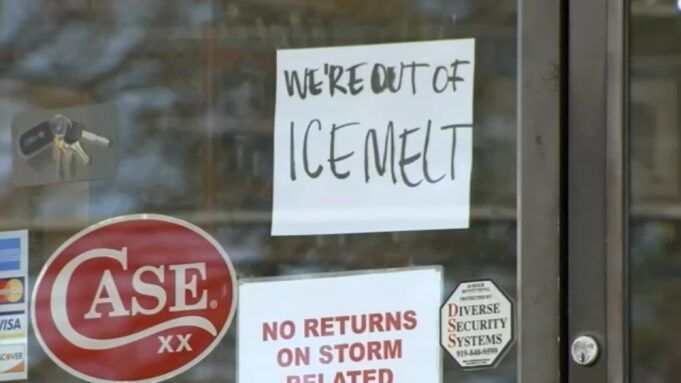 WE'RE OUT OF
ICE MELT
CASE
XX
NO RETURNS
ON STORM
RELATED
24 HOUR
MONITORING
PROTECTED BY
DIVERSE
SECURITY
SYSTEMS
919-848-9599
VISA
DISCOVER